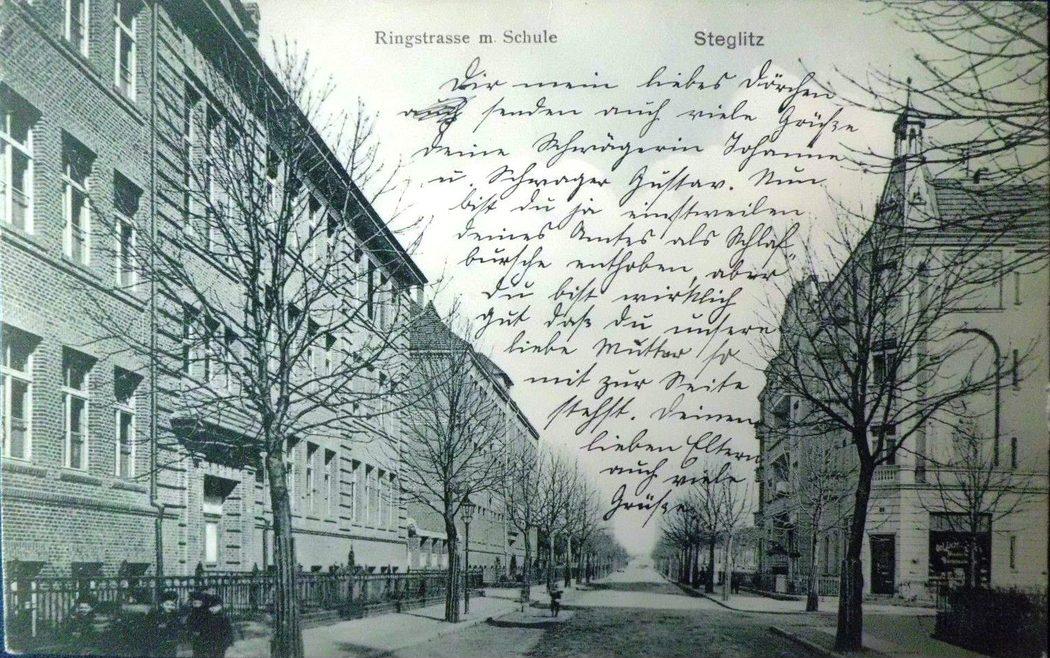 Ringstrasse m. Schule
Steglitz
Dir mein liebes Dörchen
senden auch viele Grüße
deine Schwägerin Johanna
u. Schwager Gustav. Nun
bist du ja einstweilen
deines Amtes als Schlaf
bursche enthoben, aber
du bist wirklich
gut daß du unsern
liebe Mutter so
mit zur Seite
stehst. Deinen
lieben Eltern
auch viele
Grüße